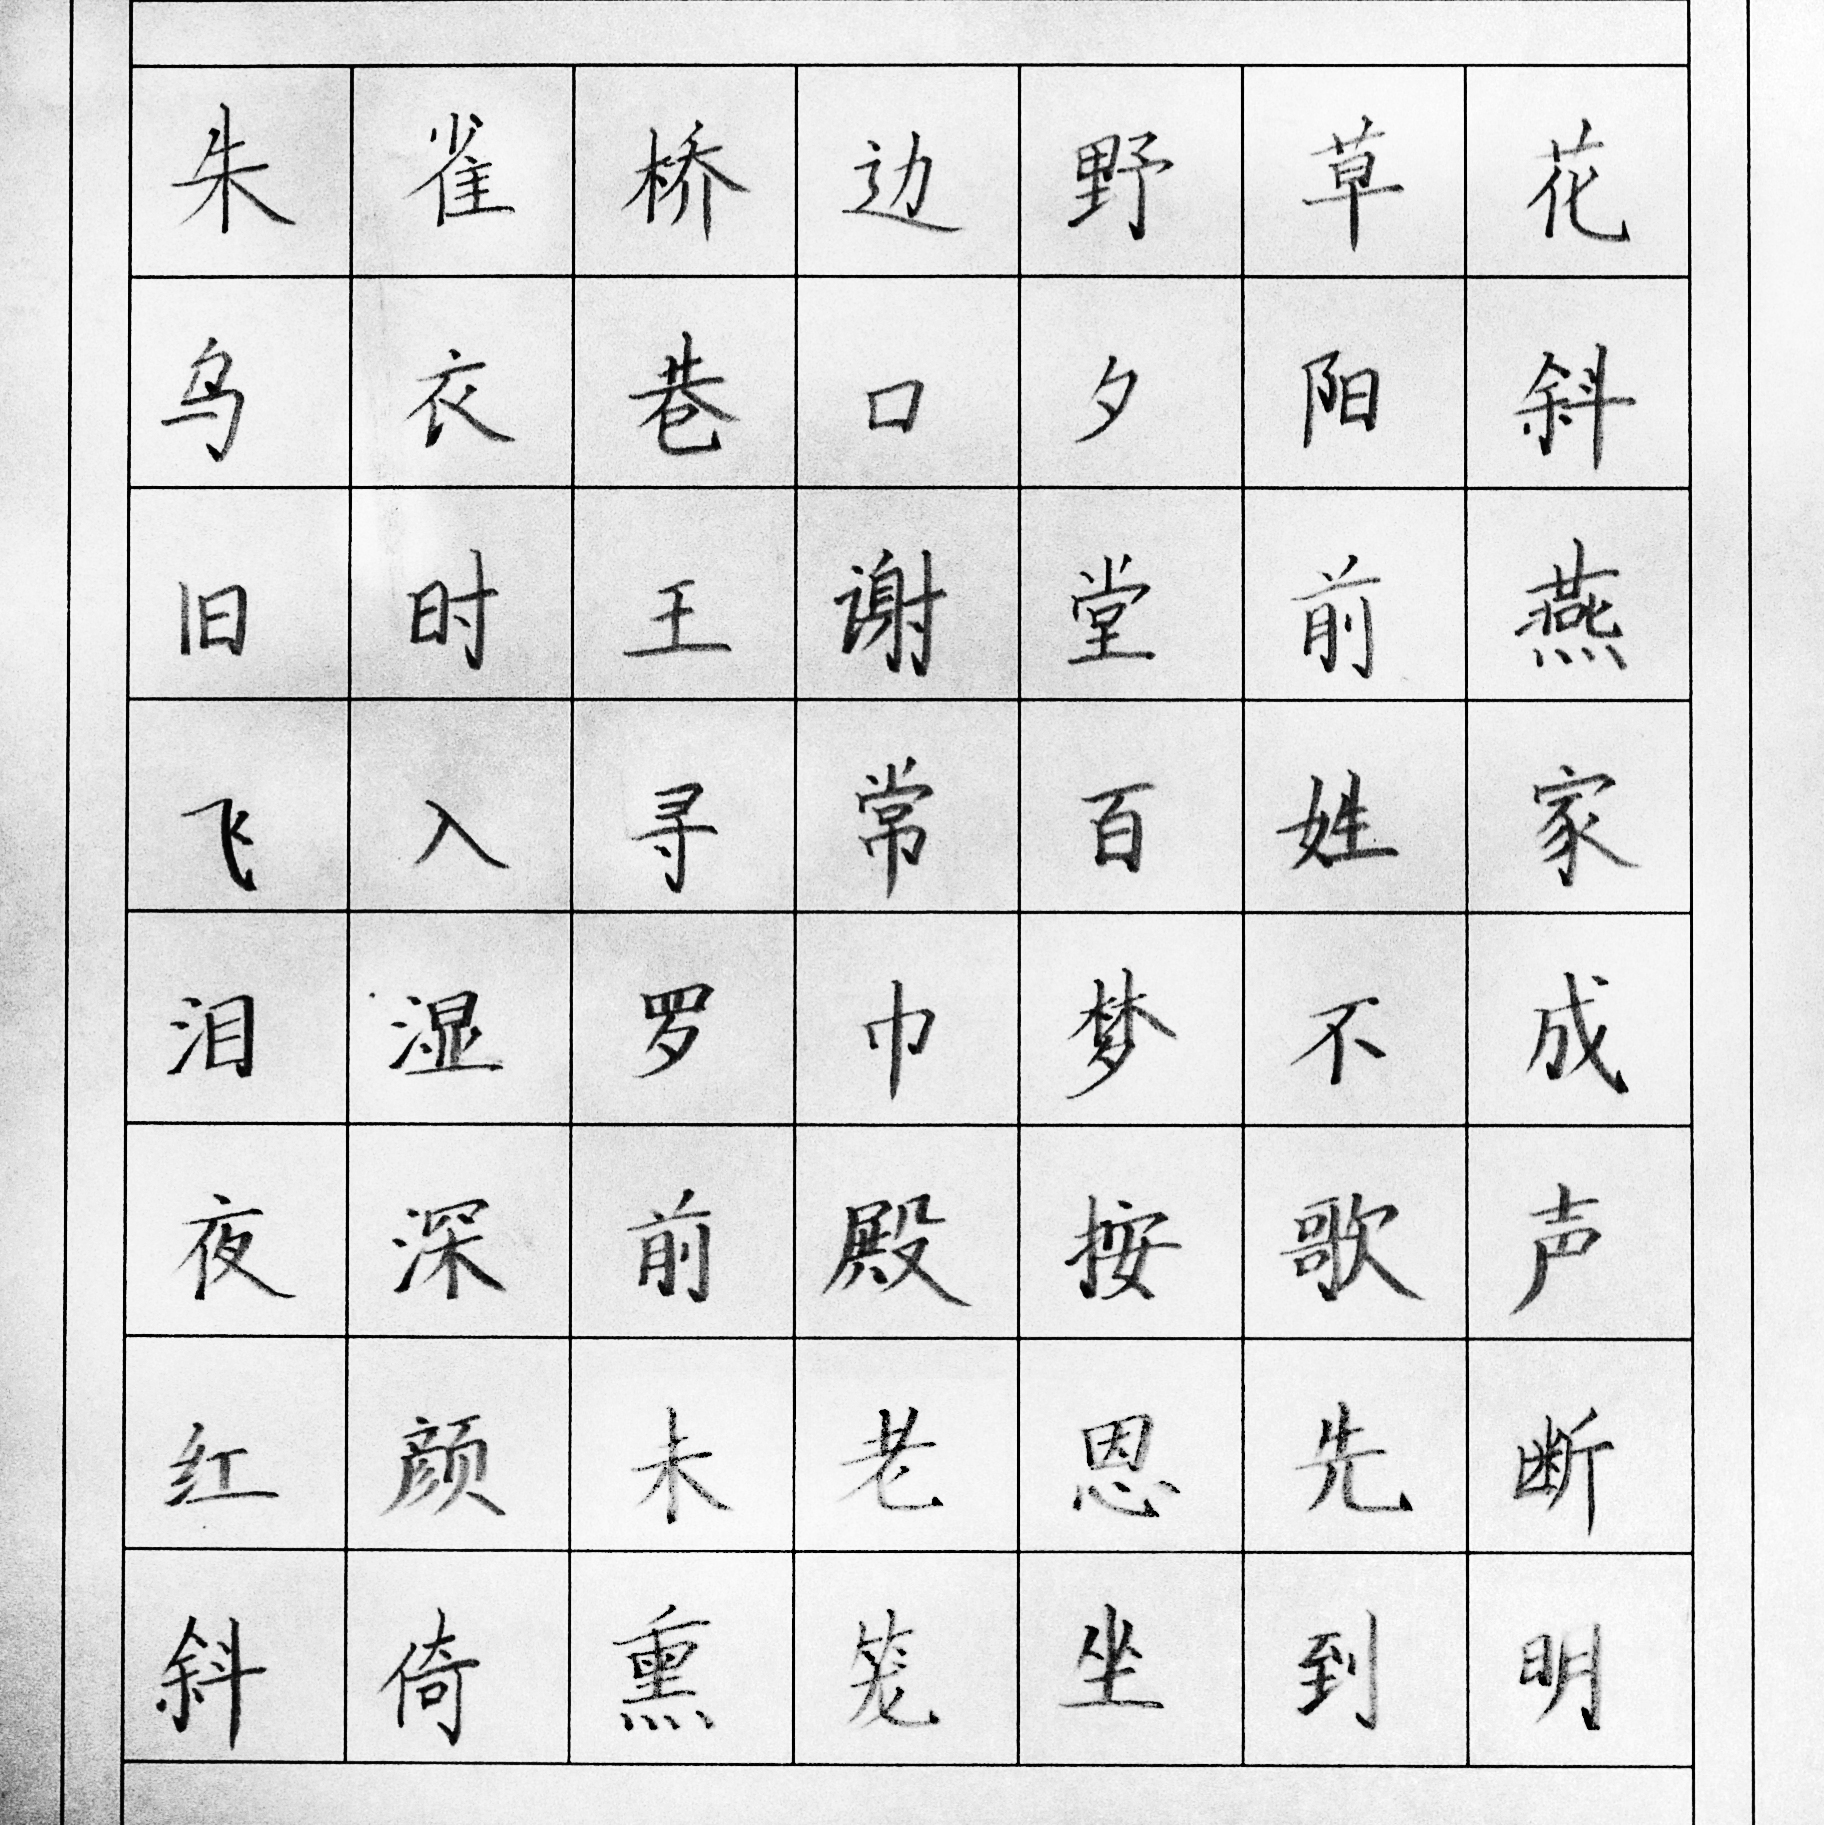 朱雀桥边野草花
乌衣巷口夕阳斜
旧时王谢堂前燕
飞入寻常百姓家
泪湿罗巾梦不成
夜深前殿按歌声
红颜未老恩先断
斜倚熏笼坐到明